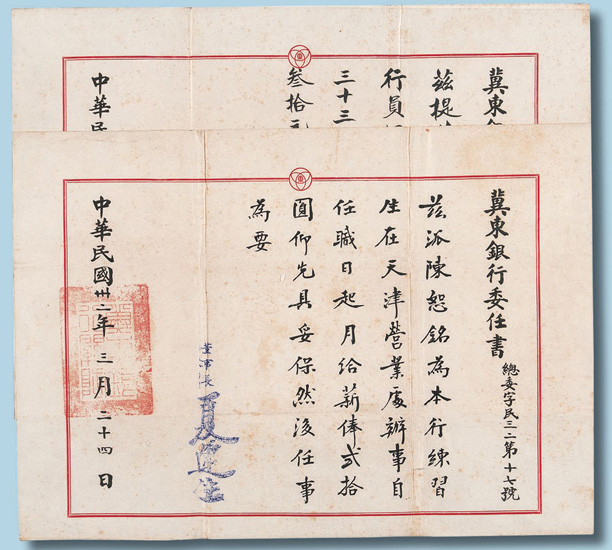 冀東銀
茲提
行員
三十三
叁拾元
中華民
冀東銀行委任書
總委字民三二第十七號
茲派陳恕銘為本行練習
生在天津營業處辦事自
任職日起月給薪俸弍拾
圓仰先具妥保然後任事
為要
董事長
中華民國卅二年三月二十四日